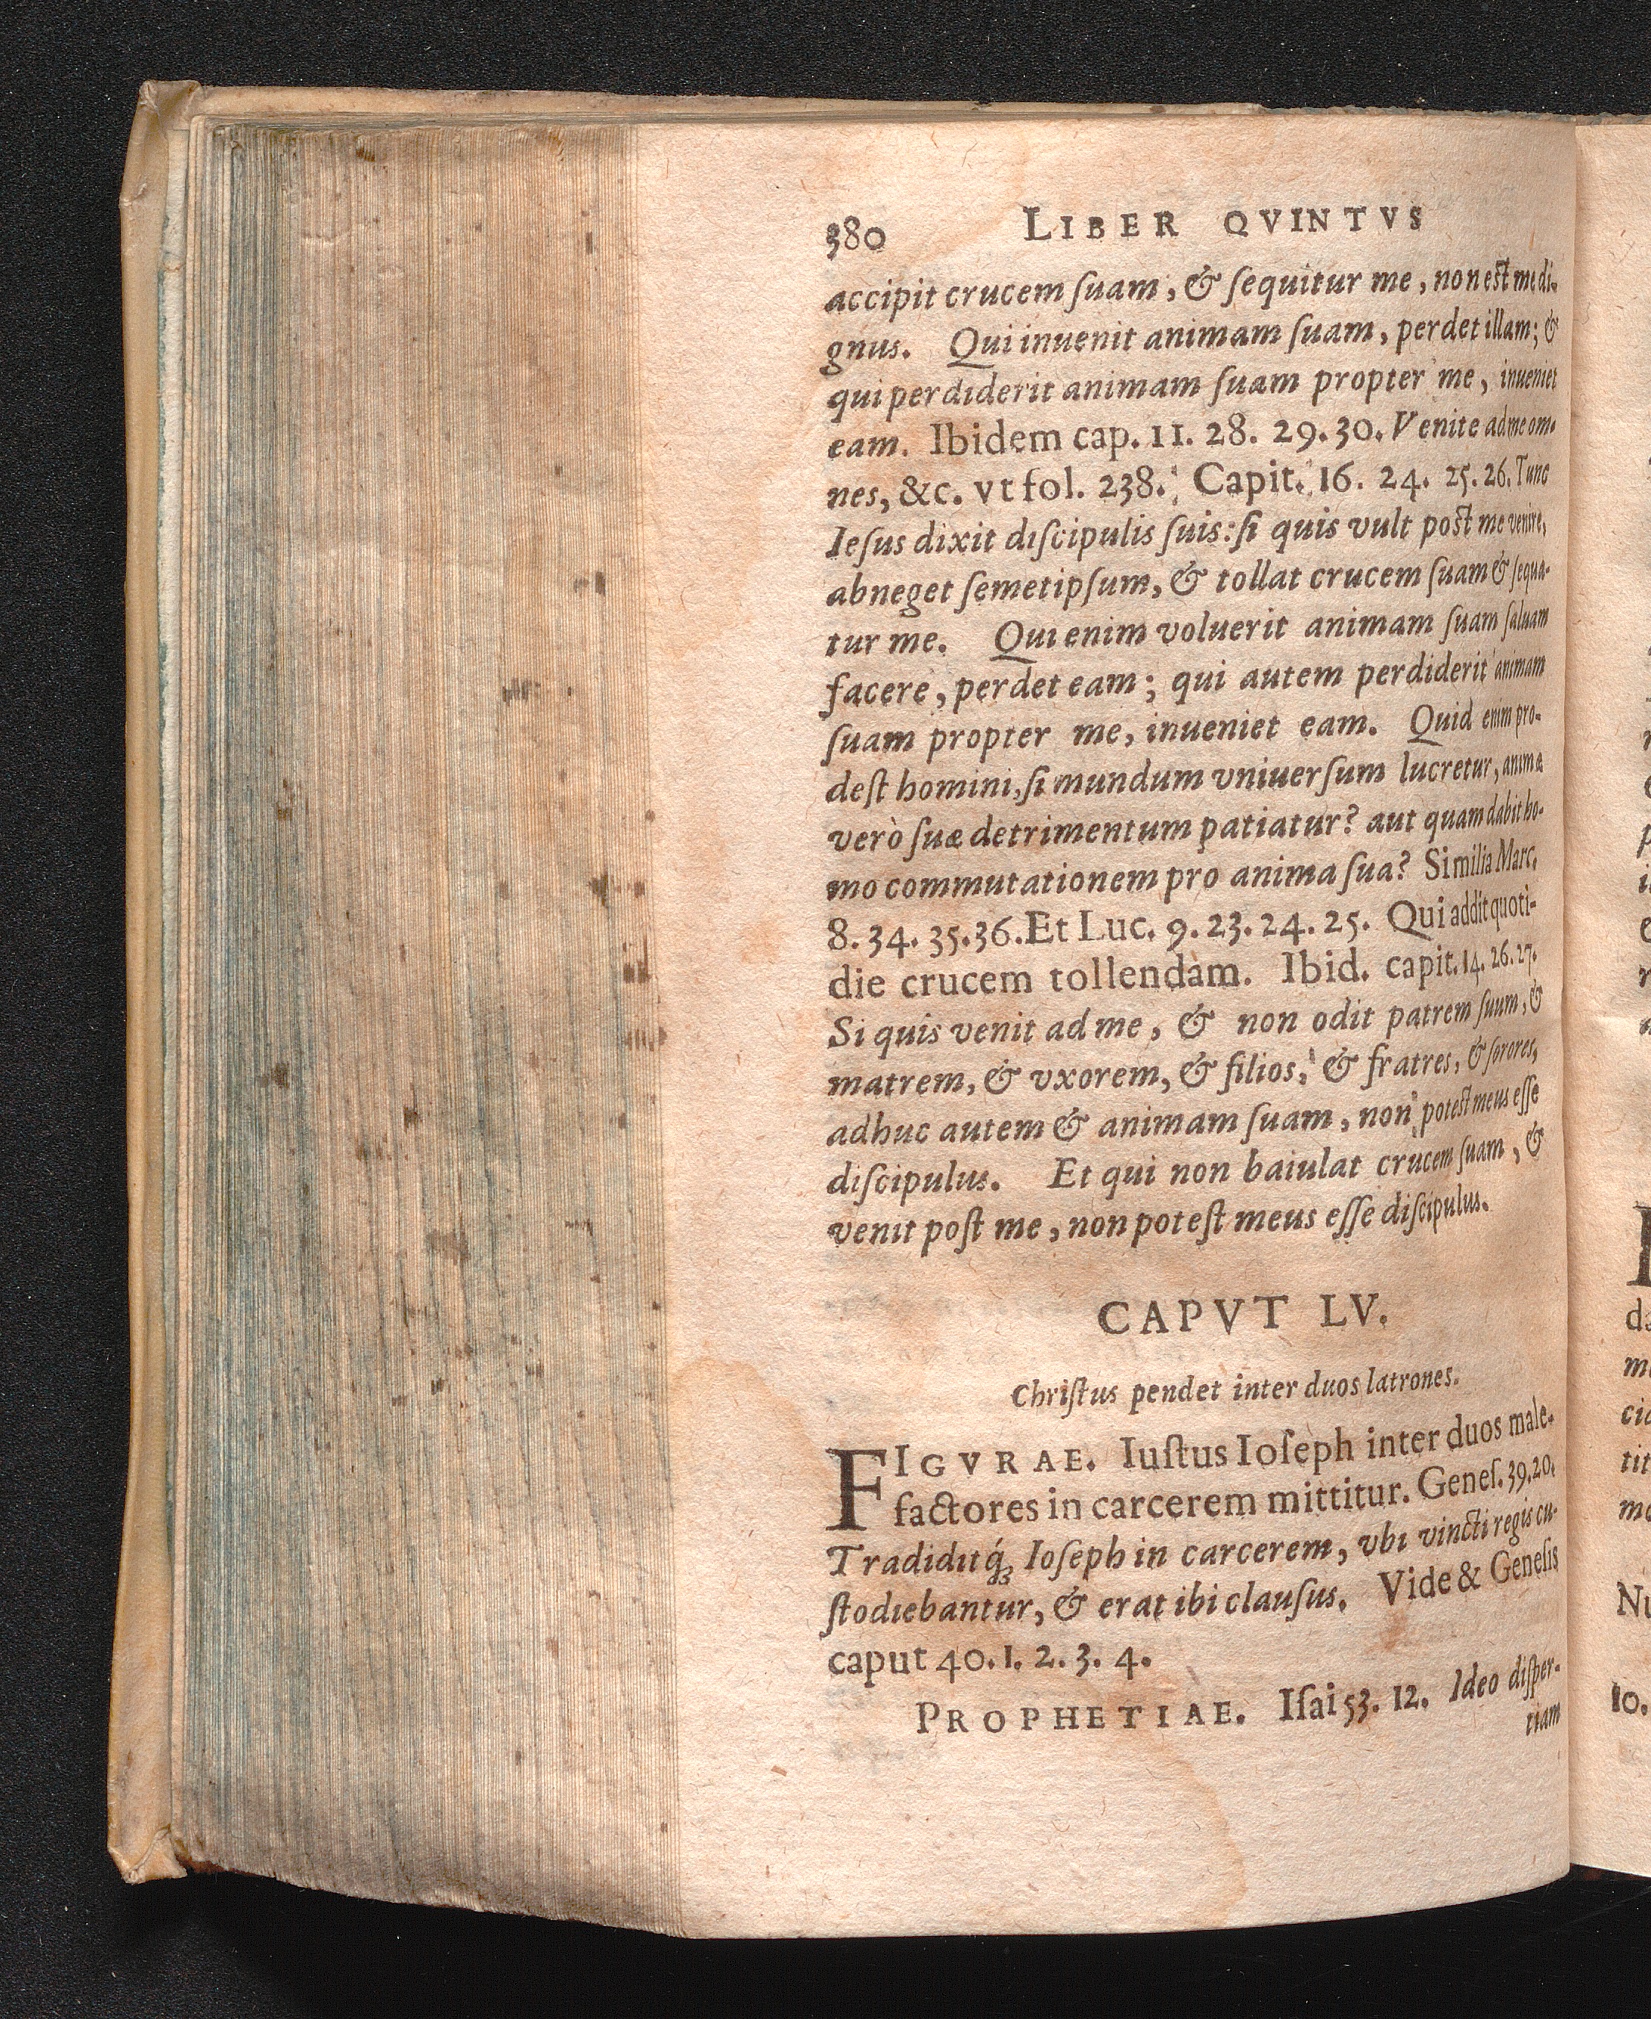 380 LIBER QVINTVS
accipit crucem ſuam, & ſequitur me, non eſt me di-
gnus. Qui inuenit animam ſuam, perdet illam; &
qui perdiderit animam ſuam propter me, inueniet
eam. Ibidem cap. 11. 28. 29. 30. Venite ad me om-
nes, &c. vt fol. 238. Capit. 16. 24. 25. 26. Tunc
Ieſus dixit diſcipulis ſuis: ſi quis vult poſt me venire,
abneget ſemetipſum, & tollat crucem ſuam & ſequa-
tur me. Qui enim voluerit animam ſuam ſaluam
facere, perdet eam; qui autem perdiderit animam
ſuam propter me, inueniet eam. Quid enim pro-
deſt homini, ſi mundum vniuerſum lucretur, animæ
verò ſuæ detrimentum patiatur? aut quam dabit ho-
mo commutationem pro anima ſua? Similia Marc.
8. 34. 35. 36. Et Luc. 9. 23. 24. 25. Qui addit quoti-
die crucem tollendam. Ibid. capit. 14. 26. 27.
Si quis venit ad me, & non odit patrem ſuum, &
matrem, & vxorem, & filios, & fratres, & ſorores,
adhuc autem & animam ſuam, non poteſt meus eſſe
diſcipulus. Et qui non baiulat crucem ſuam, &
venit poſt me, non poteſt meus eſſe diſcipulus.
CAPVT LV.
Chriſtus pendet inter duos latrones.
FIGVRAE. Iuſtus Ioſeph inter duos male-
factores in carcerem mittitur. Geneſ. 39. 20.
Tradiditq́; Ioſeph in carcerem, vbi vincti regis cu-
ſtodiebantur, & erat ibi clauſus. Vide & Geneſis
caput 40. 1. 2. 3. 4.
PROPHETIAE. Iſai 53. 12. Ideo diſper-
tiam